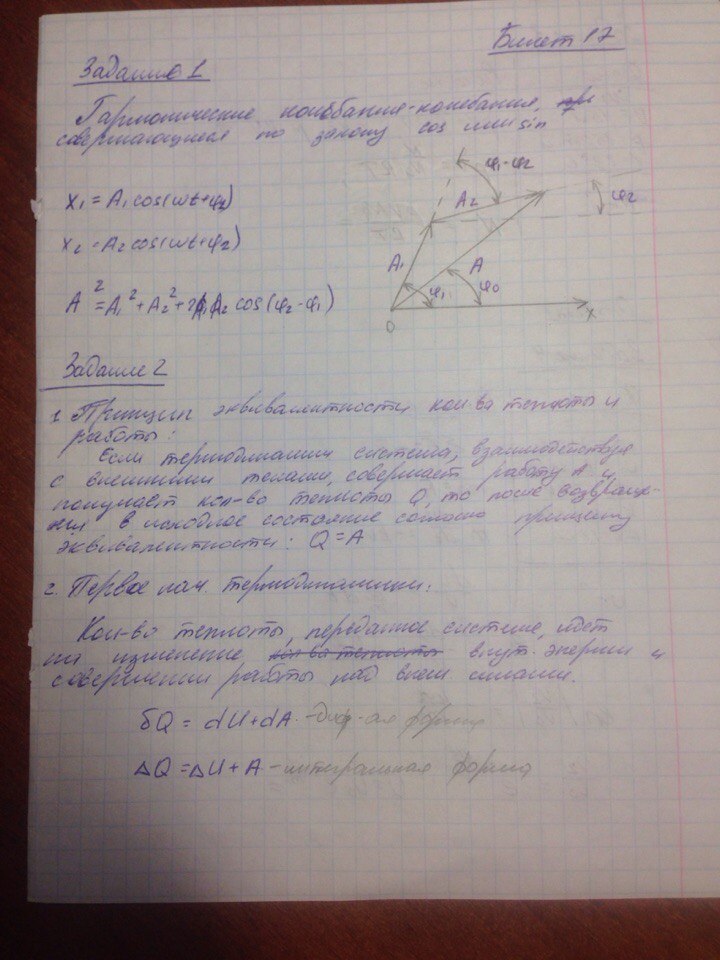 Билет 17
Задание 1
Гармонические колебания-колебания,
совершающиеся по закону cos или sin
x₁ = A₁ cos(ωt+φ₁)
x₂ = A₂ cos(ωt+φ₂)
A² = A₁² + A₂² + 2A₁A₂ cos(φ₂-φ₁)
φ₁-φ₂
A₂
φ₂
A₁
A
φ₁
φ₀
O
x
Задание 2
1. Принцип эквивалентности кол-ва теплоты и
работы:
Если термодинамич система, взаимодействуя
с внешними телами, совершает работу A и
получает кол-во теплоты Q, то после возвращ-
ния в исходное состояние согласно принципу
эквивалентности: Q = A
2. Первое нач. термодинамики:
Кол-во теплоты, переданное системе, идет
на изменение кол-во теплоты внут. энергии и
совершении работы над внеш силами.
δQ = dU + dA - диф-ая форма
ΔQ = ΔU + A - интегральная форма